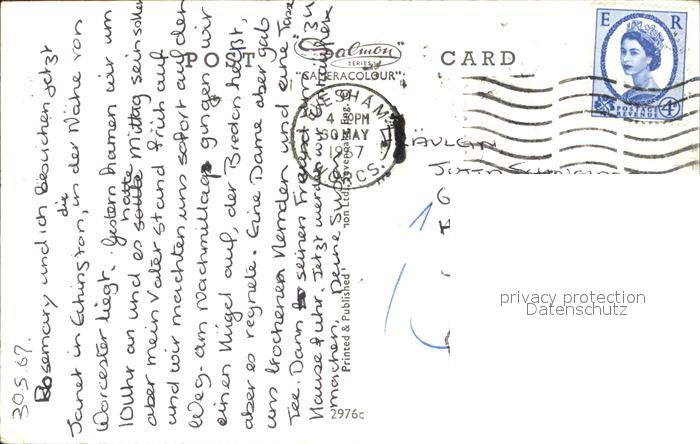 POST CARD
"Salmon"
SERIES
"CAMERACOLOUR"
E R
POSTAGE
REVENUE
4D
EVESHAM
4 PM
30 MAY
1967
WORCS.
FRÄULEIN
privacy protection
Datenschutz
Printed & Published
2976c
30.5.67.
Rosemary und ich besuchen jetzt
Janet in Ethington, die in der Nähe von
Worcester liegt. Gestern kamen wir um
10 Uhr an und es hatte Mittag sein sollen
aber mein Vater stand früh auf
und wir machten uns sofort auf den
Weg. Am Nachmittag gingen wir
einen Hügel auf, der Bredon heißt,
aber es regnete. Eine Dame aber gab
uns trockenen Hemden und eine Tasse
Tee. Dann seinen Freund ihn zu
Hause fuhr. Jetzt werden wir
machen, Deine Susan